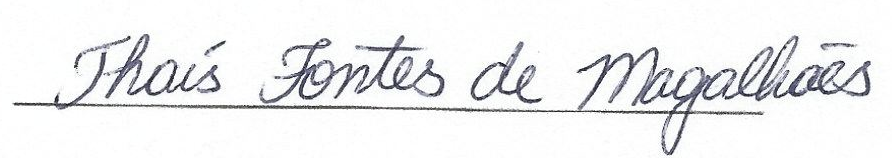 Thaís Fontes de Magalhães